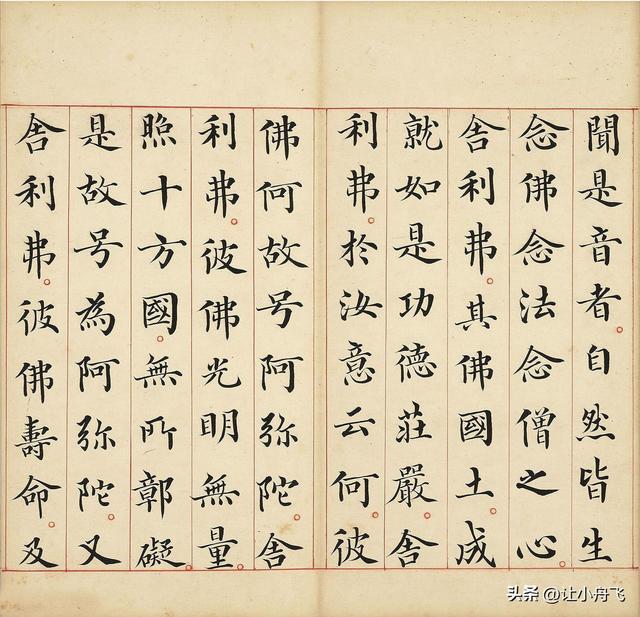 聞是音者。自然皆生
念佛念法念僧之心。
舍利弗。其佛國土。成
就如是功德莊嚴。舍
利弗。於汝意云何。彼
佛何故号阿弥陀。舍
利弗。彼佛光明無量。
照十方國。無所鄣礙。
是故号為阿弥陀。又
舍利弗。彼佛壽命。及
头条 @让小舟飞